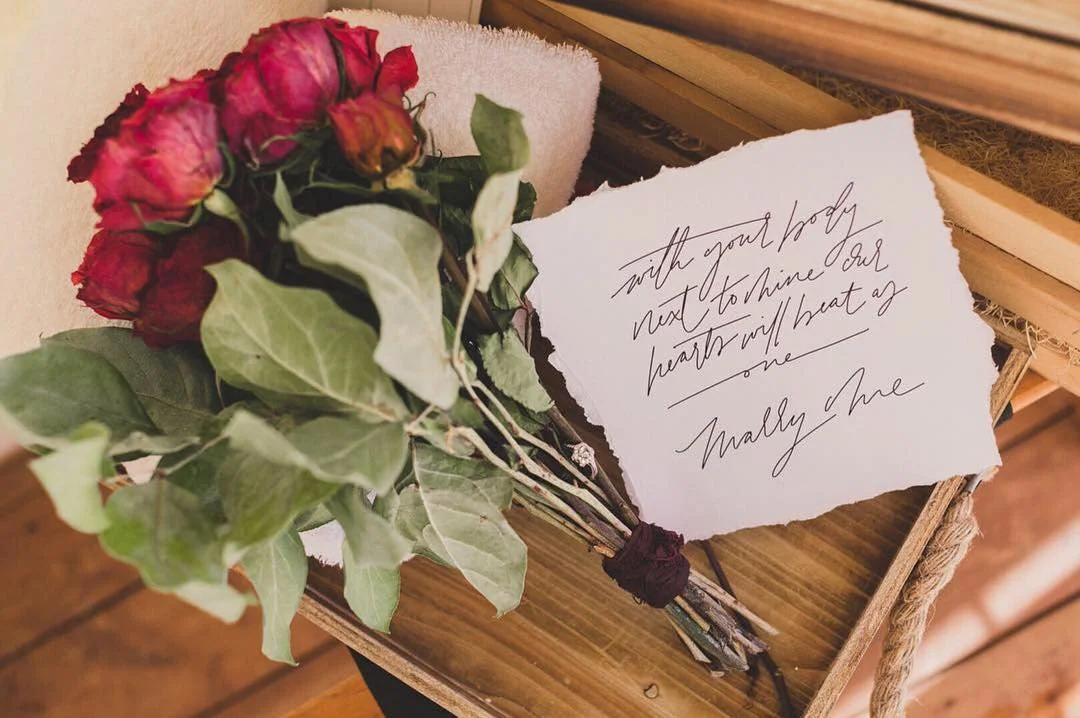 with your body
next to mine our
hearts will beat as
one
Marry Me